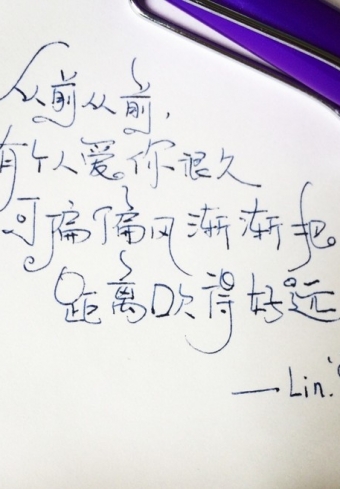 从前从前,
有个人爱你很久
可偏偏风渐渐把
距离吹得好远
—Lin.